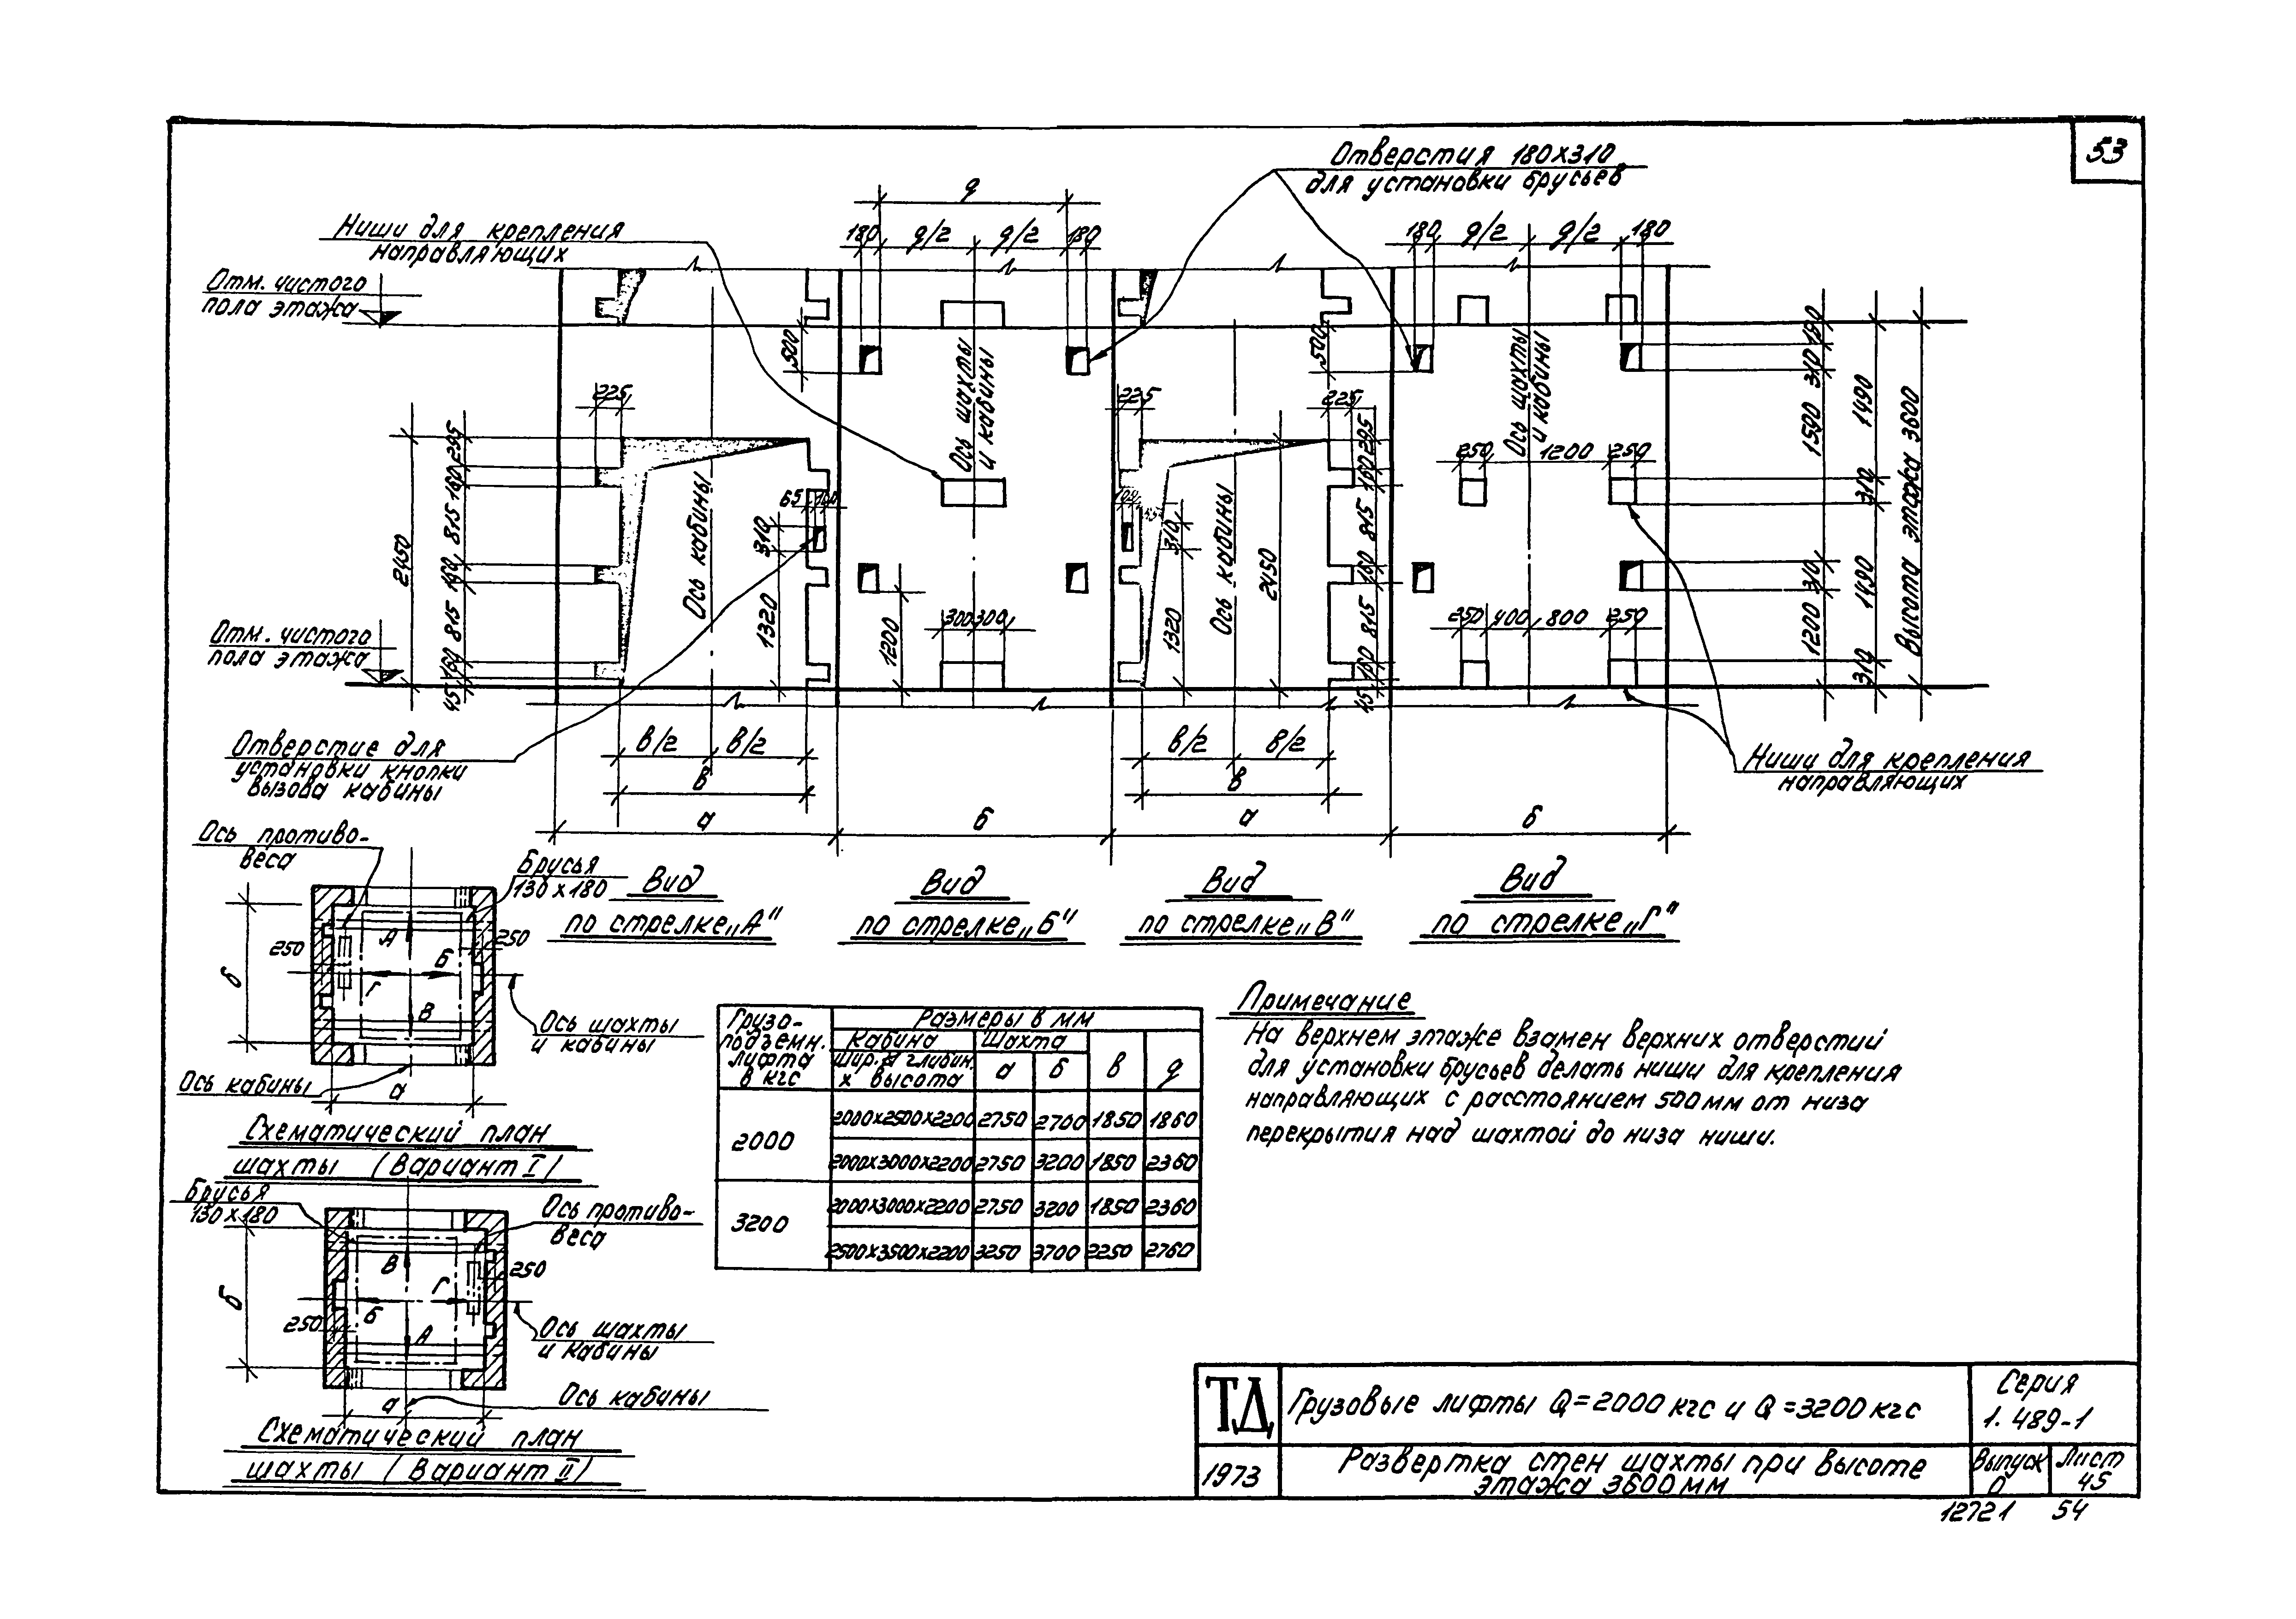 53
Отверстия 180х310
для установки брусьев
Ниши для крепления
направляющих
g
180 g/2 g/2 180
180 g/2 g/2 180
Отм. чистого
пола этажа
500
500
Ось шахты
и кабины
Ось шахты
и кабины
190
310
1590
310
1200
1490
310
1490
310
Высота этажа 3600
225
225
225
2450
295
160
815
160
815
160
45
Ось кабины
65 100
310
1320
1200
300 300
100
310
1320
Ось кабины
2450
295
160
815
160
815
160
45
250 1200 250
250 400 800 250
Отм. чистого
пола этажа
Отверстие для
установки кнопки
вызова кабины
Ниши для крепления
направляющих
в/2 в/2
в
в/2 в/2
в
а б а б
Вид
по стрелке „А"
Вид
по стрелке „Б"
Вид
по стрелке „В"
Вид
по стрелке „Г"
Ось противо-
веса
Брусья
130х180
250
250
А
Б
Г
В
б
а
Ось шахты
и кабины
Ось кабины
Схематический план
шахты (Вариант I)
Брусья
130х180
Ось противо-
веса
250
250
В
Г
Б
А
б
а
Ось шахты
и кабины
Ось кабины
Схематический план
шахты (Вариант II)
Грузо-
подъемн.
лифта
в кгс
Размеры в мм
Кабина Шахта
шир. х глубин.
х высота
а б в g
2000
2000х2500х2200 2750 2700 1850 1860
2000х3000х2200 2750 3200 1850 2360
3200
2000х3000х2200 2750 3200 1850 2360
2500х3500х2200 3250 3700 2250 2760
Примечание
На верхнем этаже взамен верхних отверстий
для установки брусьев делать ниши для крепления
направляющих с расстоянием 500мм от низа
перекрытия над шахтой до низа ниши.
ТД
Грузовые лифты Q=2000 кгс и Q=3200 кгс
Серия
1.489-1
1973
Развертка стен шахты при высоте
этажа 3600мм
Выпуск
0
Лист
45
12721 54